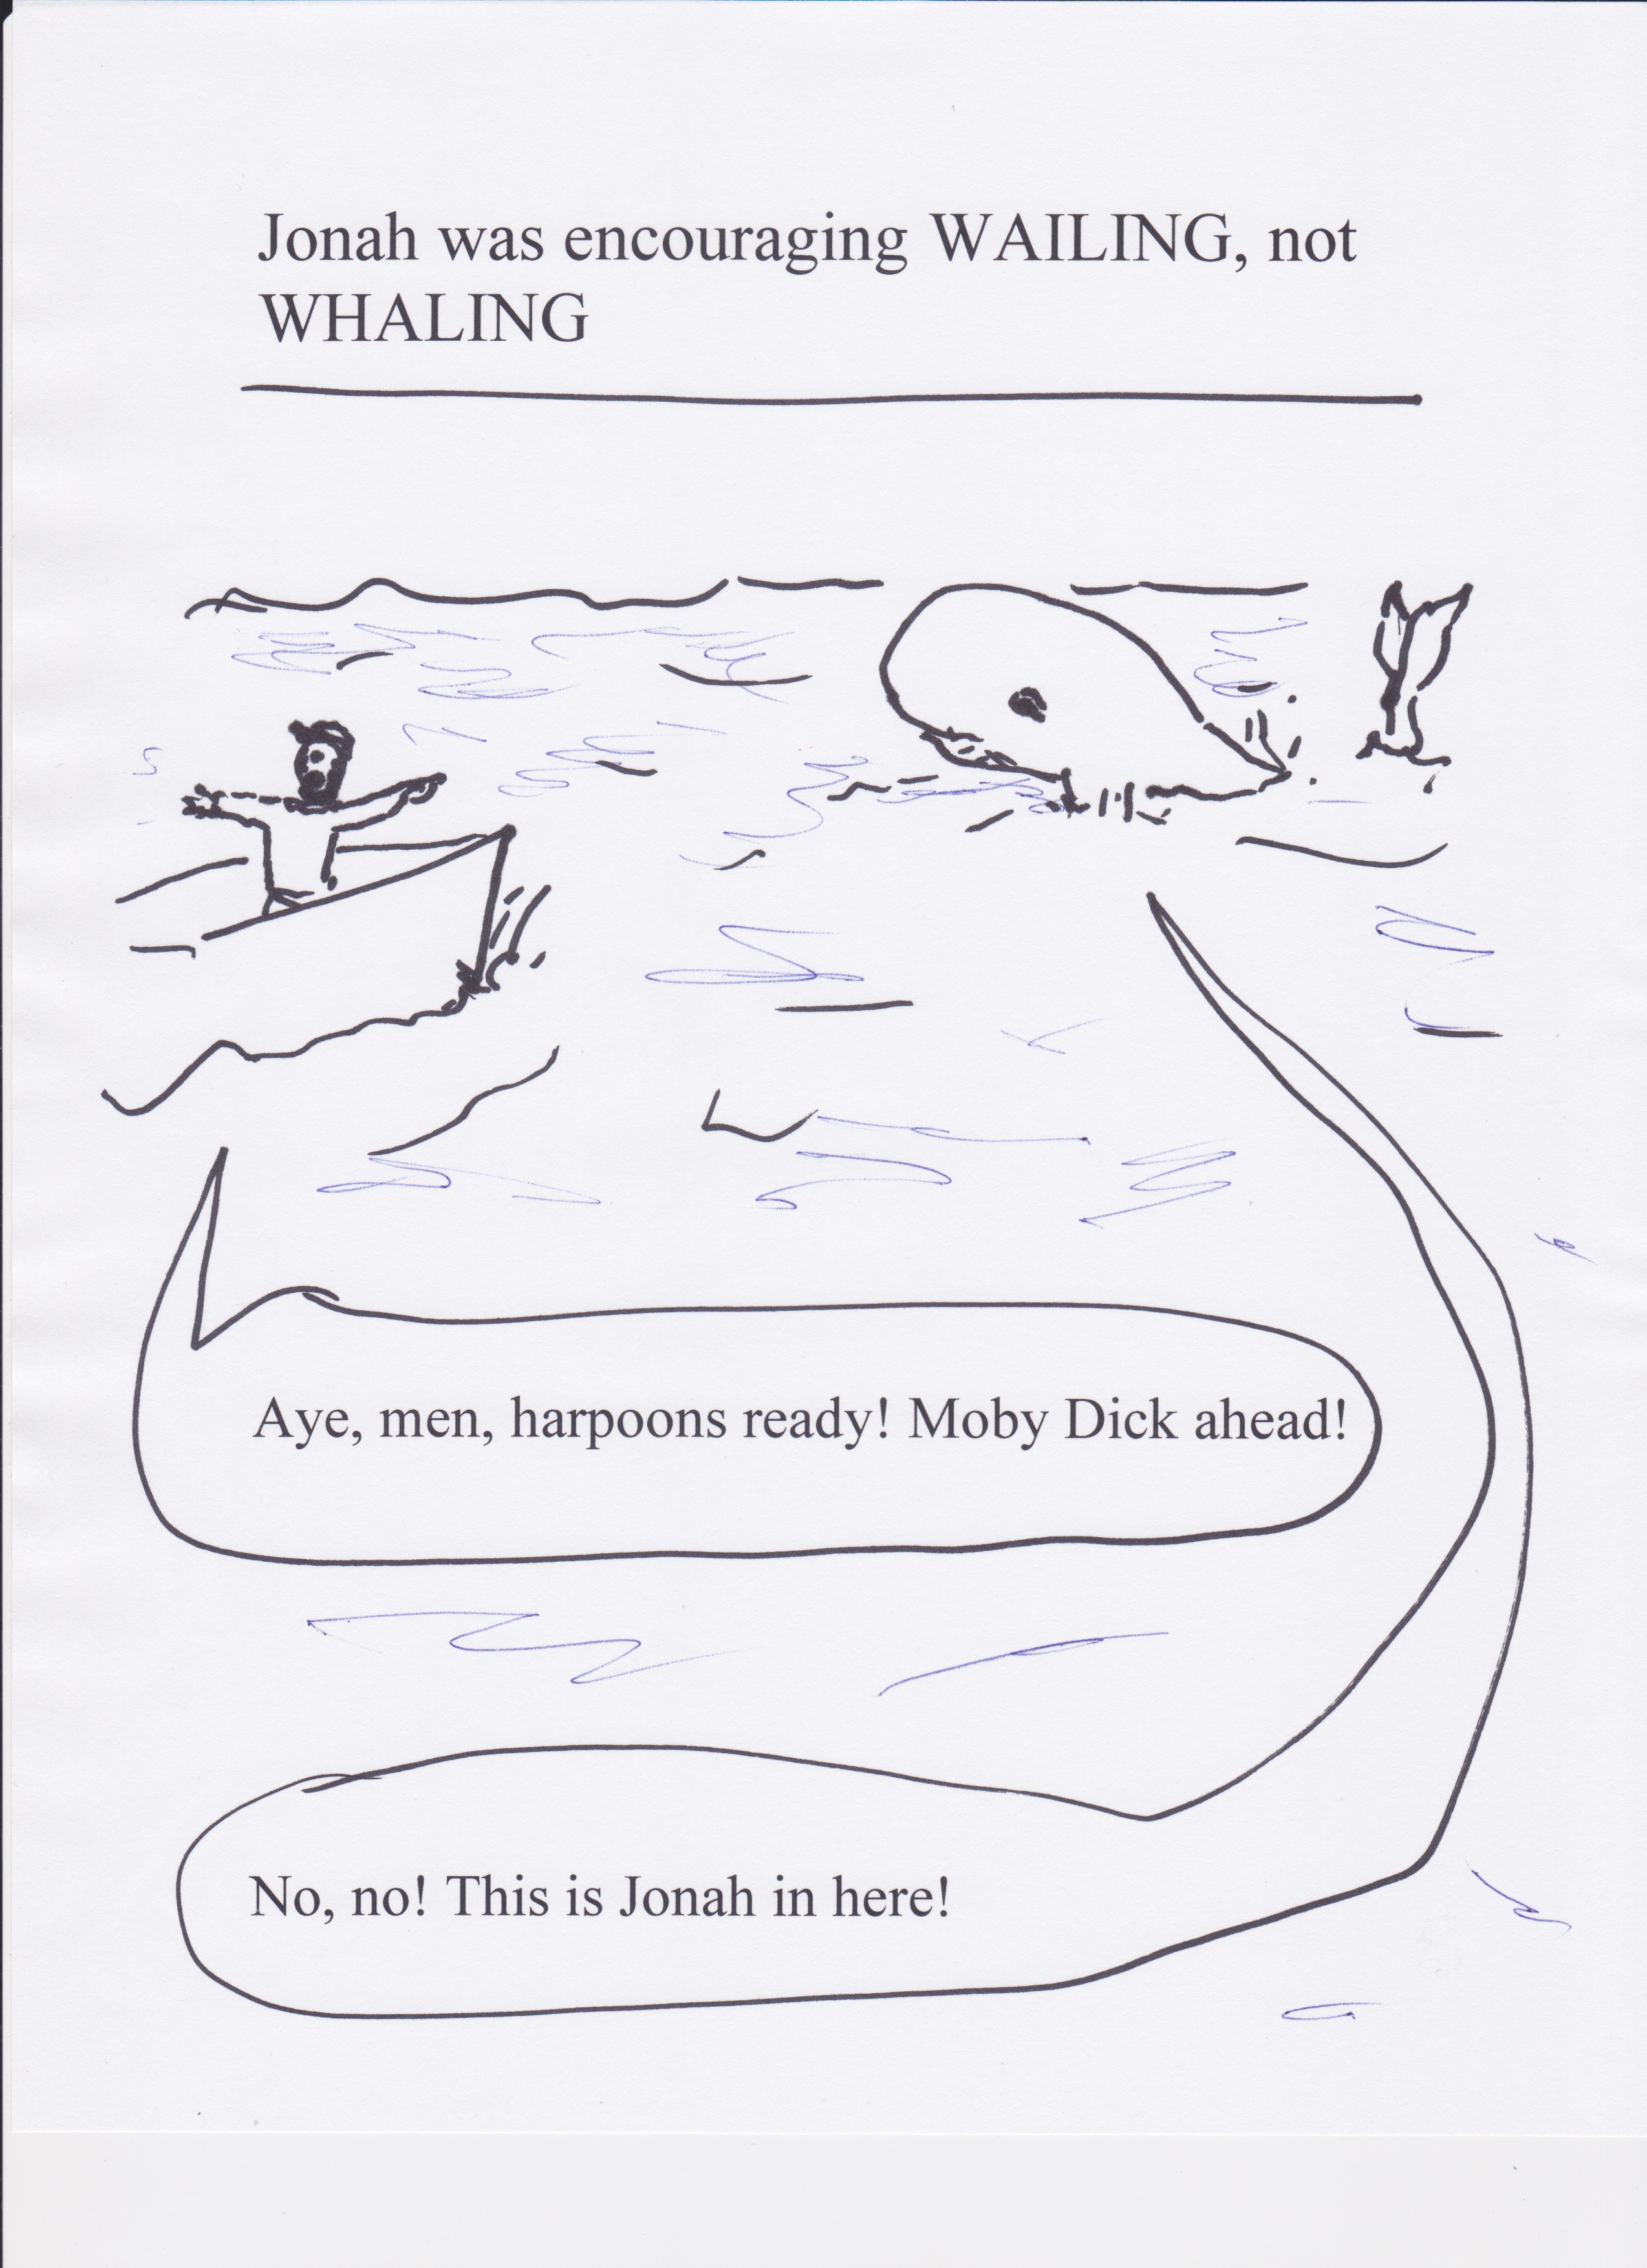 Jonah was encouraging WAILING, not
WHALING
Aye, men, harpoons ready! Moby Dick ahead!
No, no! This is Jonah in here!